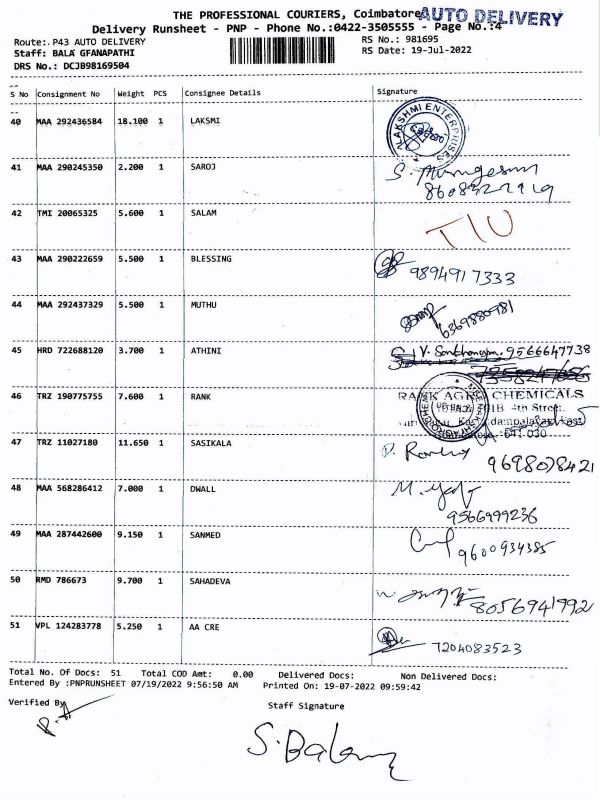 THE PROFESSIONAL COURIERS, Coimbatore AUTO DELIVERY
Delivery Runsheet - PNP - Phone No.:0422-3505555 - Page No.:4
Route:. P43 AUTO DELIVERY RS No.: 981695
Staff: BALA GFANAPATHI RS Date: 19-Jul-2022
DRS No.: DCJB98169504
S No Consignment No Weight PCS Consignee Details Signature
40 MAA 292436584 18.100 1 LAKSMI
41 MAA 290245350 2.200 1 SAROJ S. Murugesan
42 TMI 20065325 5.600 1 SALAM
43 MAA 290222659 5.500 1 BLESSING 9894917333
44 MAA 292437329 5.500 1 MUTHU 6369880981
45 HRD 722688120 3.700 1 ATHINI 9566647738
46 TRZ 190775755 7.600 1 RANK AGRO CHEMICALS
47 TRZ 11027180 11.650 1 SASIKALA
9698078421
48 MAA 568286412 7.000 1 DWALL
9566999236
49 MAA 287442600 9.150 1 SANMED
9600934385
50 RMD 786673 9.700 1 SAHADEVA
8056941992
51 VPL 124283778 5.250 1 AA CRE
7204083523
Total No. Of Docs: 51 Total COD Amt: 0.00 Delivered Docs: Non Delivered Docs:
Entered By :PNPRUNSHEET 07/19/2022 9:56:50 AM Printed On: 19-07-2022 09:59:42
Verified By Staff Signature